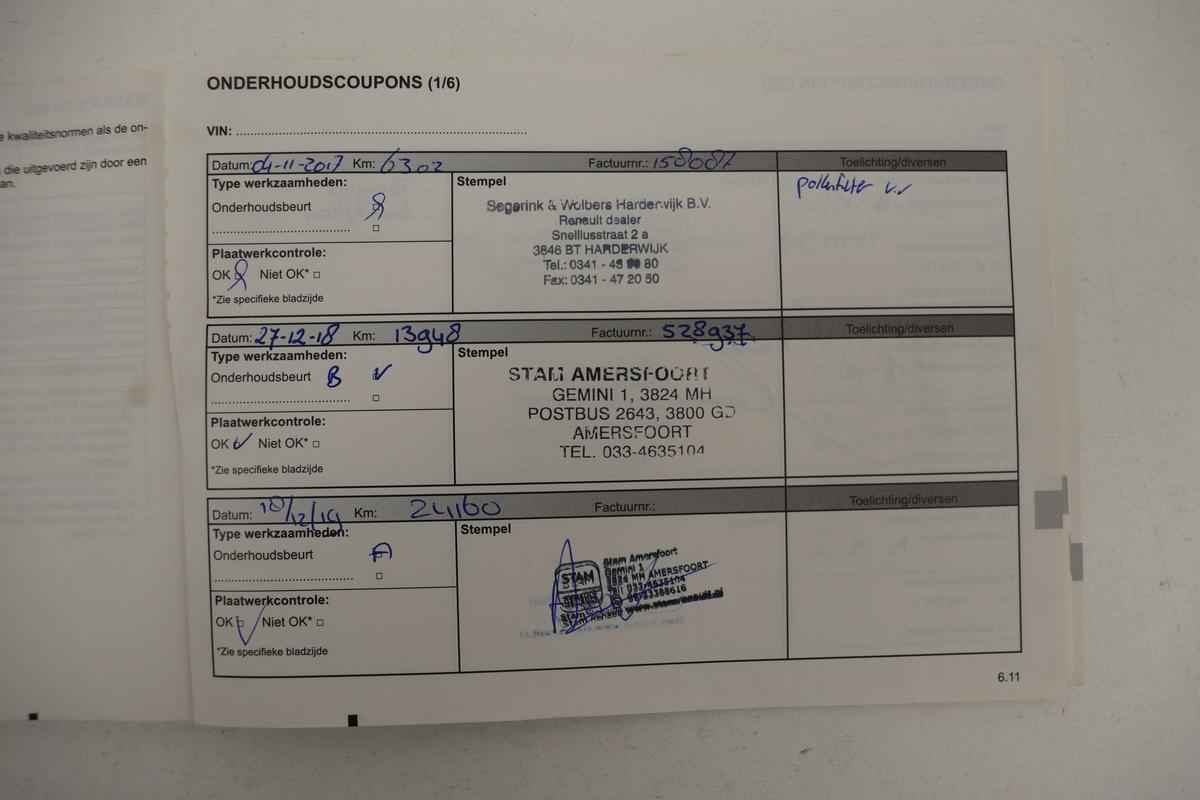 e kwaliteitsnormen als de on-
die uitgevoerd zijn door een
an.
ONDERHOUDSCOUPONS (1/6)
VIN: ................................................................
Datum: 04-11-2017 Km: 6302 Factuurnr.: 158087 Toelichting/diversen
Type werkzaamheden:
Stempel
pollenfilter v.v
Onderhoudsbeurt
Segerink & Wolbers Harderwijk B.V.
Renault dealer
Snelliusstraat 2 a
3846 BT HARDERWIJK
Tel.: 0341 - 45 80
Fax: 0341 - 47 20 50
Plaatwerkcontrole:
OK Niet OK* □
*Zie specifieke bladzijde
Datum: 27-12-18 Km: 13948 Factuurnr.: 528937 Toelichting/diversen
Type werkzaamheden:
Stempel
Onderhoudsbeurt B ✓
STAM AMERSFOORT
GEMINI 1, 3824 MH
POSTBUS 2643, 3800 GD
AMERSFOORT
TEL. 033-4635104
Plaatwerkcontrole:
OK ✓ Niet OK* □
*Zie specifieke bladzijde
Datum: 18/12/19 Km: 24160 Factuurnr.: Toelichting/diversen
Type werkzaamheden:
Stempel
Onderhoudsbeurt A
STAM
Stam Amersfoort
Gemini 1
3824 MH AMERSFOORT
033-4635104
www.stamrenault.nl
Plaatwerkcontrole:
OK ✓ Niet OK* □
*Zie specifieke bladzijde
6.11